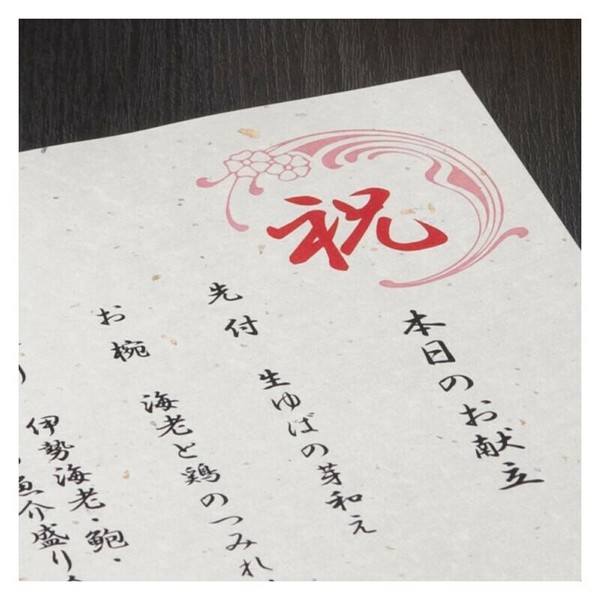 祝
本日のお献立
先付
生ゆばの芽和え
お椀
海老と鶏のつみれ、
伊勢海老・鮑・
魚介盛り